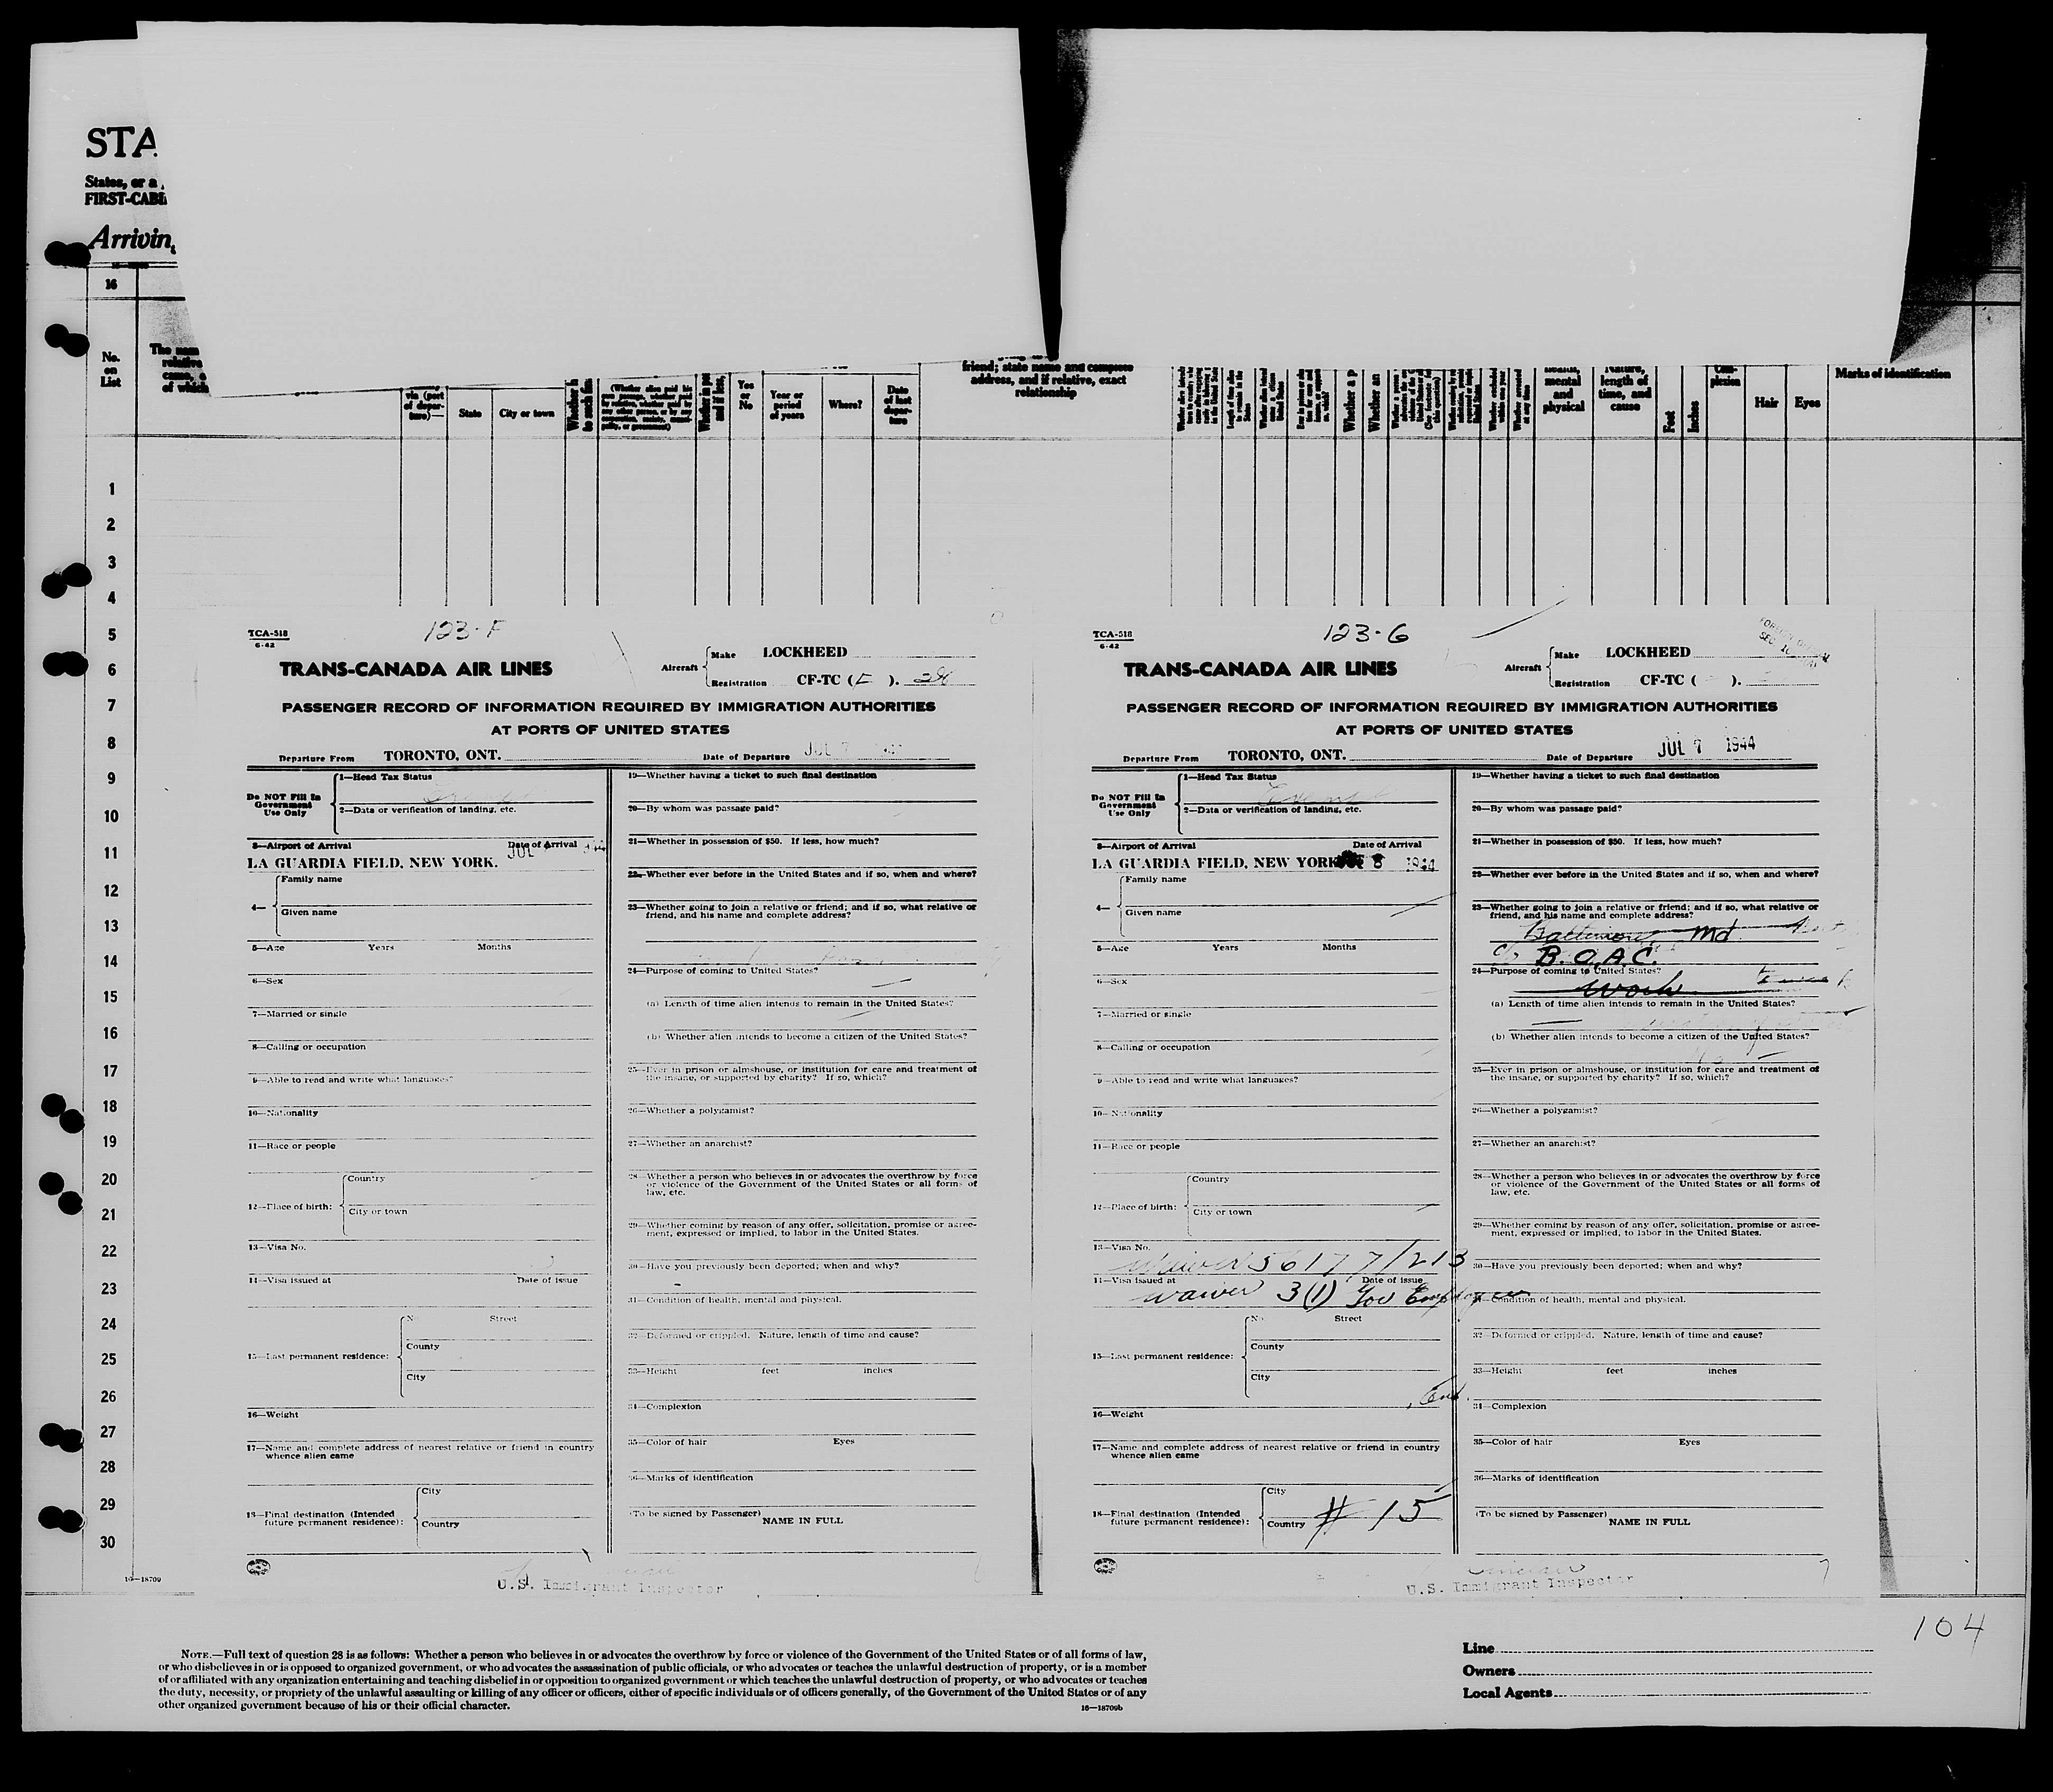 STA
States, or a
FIRST-CABI
Arrivin
16
No.
on
List
The nam
relative
came, o
of which
via (port
of depar-
ture)—
State
City or town
Whether h
to such fin
(Whether alien paid his
Whether in pos
and if less,
Yes
or
No
Year or
period
of years
Where?
Date
of last
depar-
ture
friend; state name and complete
address, and if relative, exact
relationship
Whether a p
Whether an
mental
and
physical
length of
time, and
cause
Feet
Inches
Com-
plexion
Hair
Eyes
Marks of identification
1
2
3
4
5
6
7
8
9
10
11
12
13
14
15
16
17
18
19
20
21
22
23
24
25
26
27
28
29
30
16—18709
TCA-518
6-42
123-F
TRANS-CANADA AIR LINES
Aircraft
Make LOCKHEED
Registration CF-TC ( ).
PASSENGER RECORD OF INFORMATION REQUIRED BY IMMIGRATION AUTHORITIES
AT PORTS OF UNITED STATES
Departure From TORONTO, ONT. Date of Departure JUL 7
Do NOT Fill In
Government
Use Only
1—Head Tax Status
2—Data or verification of landing, etc.
3—Airport of Arrival Date of Arrival
LA GUARDIA FIELD, NEW YORK. JUL
4—
Family name
Given name
5—Age Years Months
6—Sex
7—Married or single
8—Calling or occupation
9—Able to read and write what languages?
10—Nationality
11—Race or people
12—Place of birth:
Country
City or town
13—Visa No.
14—Visa issued at Date of issue
15—Last permanent residence:
No. Street
County
City
16—Weight
17—Name and complete address of nearest relative or friend in country
whence alien came
18—Final destination (Intended
future permanent residence):
City
Country
19—Whether having a ticket to such final destination
20—By whom was passage paid?
21—Whether in possession of $50. If less, how much?
22—Whether ever before in the United States and if so, when and where?
23—Whether going to join a relative or friend; and if so, what relative or
friend, and his name and complete address?
24—Purpose of coming to United States?
(a) Length of time alien intends to remain in the United States?
(b) Whether alien intends to become a citizen of the United States?
25—Ever in prison or almshouse, or institution for care and treatment of
the insane, or supported by charity? If so, which?
26—Whether a polygamist?
27—Whether an anarchist?
28—Whether a person who believes in or advocates the overthrow by force
or violence of the Government of the United States or all forms of
law, etc.
29—Whether coming by reason of any offer, solicitation, promise or agree-
ment, expressed or implied, to labor in the United States.
30—Have you previously been deported; when and why?
31—Condition of health, mental and physical.
32—Deformed or crippled. Nature, length of time and cause?
33—Height feet inches
34—Complexion
35—Color of hair Eyes
36—Marks of identification
(To be signed by Passenger)
NAME IN FULL
U.S. Immigrant Inspector
TCA-518
6-42
123-G
TRANS-CANADA AIR LINES
Aircraft
Make LOCKHEED
Registration CF-TC ( ).
PASSENGER RECORD OF INFORMATION REQUIRED BY IMMIGRATION AUTHORITIES
AT PORTS OF UNITED STATES
Departure From TORONTO, ONT. Date of Departure JUL 7 1944
Do NOT Fill In
Government
Use Only
1—Head Tax Status
Exempt
2—Data or verification of landing, etc.
3—Airport of Arrival Date of Arrival
LA GUARDIA FIELD, NEW YORK 8 1944
4—
Family name
Given name
5—Age Years Months
6—Sex
7—Married or single
8—Calling or occupation
9—Able to read and write what languages?
10—Nationality
11—Race or people
12—Place of birth:
Country
City or town
13—Visa No.
waiver 56177/213
14—Visa issued at Date of issue
waiver 3(1) Gov Employee
15—Last permanent residence:
No. Street
County
City
Ont.
16—Weight
17—Name and complete address of nearest relative or friend in country
whence alien came
18—Final destination (Intended
future permanent residence):
City
Country
# 15
19—Whether having a ticket to such final destination
20—By whom was passage paid?
21—Whether in possession of $50. If less, how much?
22—Whether ever before in the United States and if so, when and where?
23—Whether going to join a relative or friend; and if so, what relative or
friend, and his name and complete address?
Baltimore, Md.
c/o B.O.A.C.
24—Purpose of coming to United States?
work
(a) Length of time alien intends to remain in the United States?
(b) Whether alien intends to become a citizen of the United States?
25—Ever in prison or almshouse, or institution for care and treatment of
the insane, or supported by charity? If so, which?
26—Whether a polygamist?
27—Whether an anarchist?
28—Whether a person who believes in or advocates the overthrow by force
or violence of the Government of the United States or all forms of
law, etc.
29—Whether coming by reason of any offer, solicitation, promise or agree-
ment, expressed or implied, to labor in the United States.
30—Have you previously been deported; when and why?
31—Condition of health, mental and physical.
32—Deformed or crippled. Nature, length of time and cause?
33—Height feet inches
34—Complexion
35—Color of hair Eyes
36—Marks of identification
(To be signed by Passenger)
NAME IN FULL
U.S. Immigrant Inspector
104
NOTE.—Full text of question 28 is as follows: Whether a person who believes in or advocates the overthrow by force or violence of the Government of the United States or of all forms of law,
or who disbelieves in or is opposed to organized government, or who advocates the assassination of public officials, or who advocates or teaches the unlawful destruction of property, or is a member
of or affiliated with any organization entertaining and teaching disbelief in or opposition to organized government or which teaches the unlawful destruction of property, or who advocates or teaches
the duty, necessity, or propriety of the unlawful assaulting or killing of any officer or officers, either of specific individuals or of officers generally, of the Government of the United States or of any
other organized government because of his or their official character.
16—18709b
Line
Owners
Local Agents